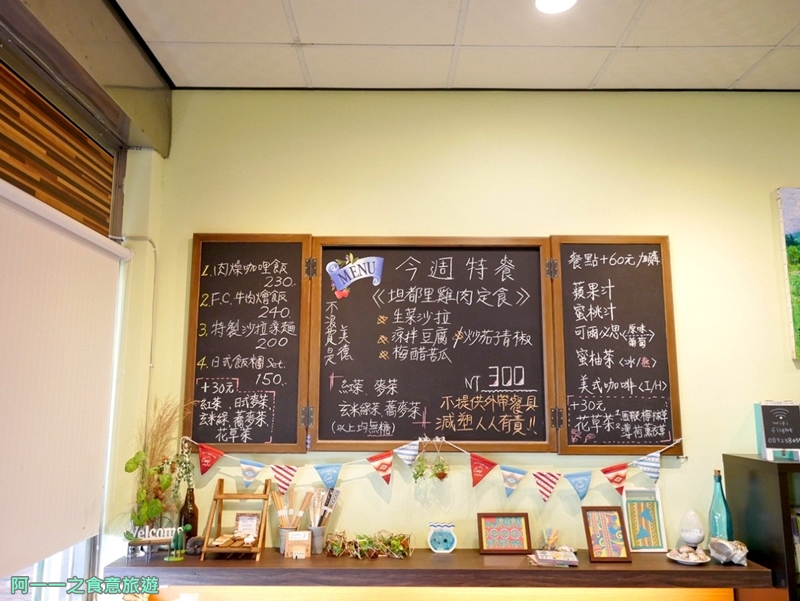 1. 肉燥咖哩飯
230.
2. F.C. 牛肉燴飯
240.
3. 特製沙拉涼麵
200
4. 日式飯糰 Set.
150.
+30元
紅茶、日式麥茶
玄米綠茶 蕎麥茶
花草茶
MENU
今週特餐
《坦都里雞肉定食》
生菜沙拉
涼拌豆腐
炒茄子青椒
梅醋苦瓜
不浪費是
美德
紅茶 麥茶
玄米綠茶 蕎麥茶
(以上均無糖)
NT 300
不提供外帶餐具
減塑人人有責!!
餐點+60元加購
蘋果汁
蜜桃汁
可爾必思<原味 葡萄>
蜜柚茶<冰/熱>
美式咖啡<I/H>
+30元
花草茶
Welcome
阿一一之食意旅遊